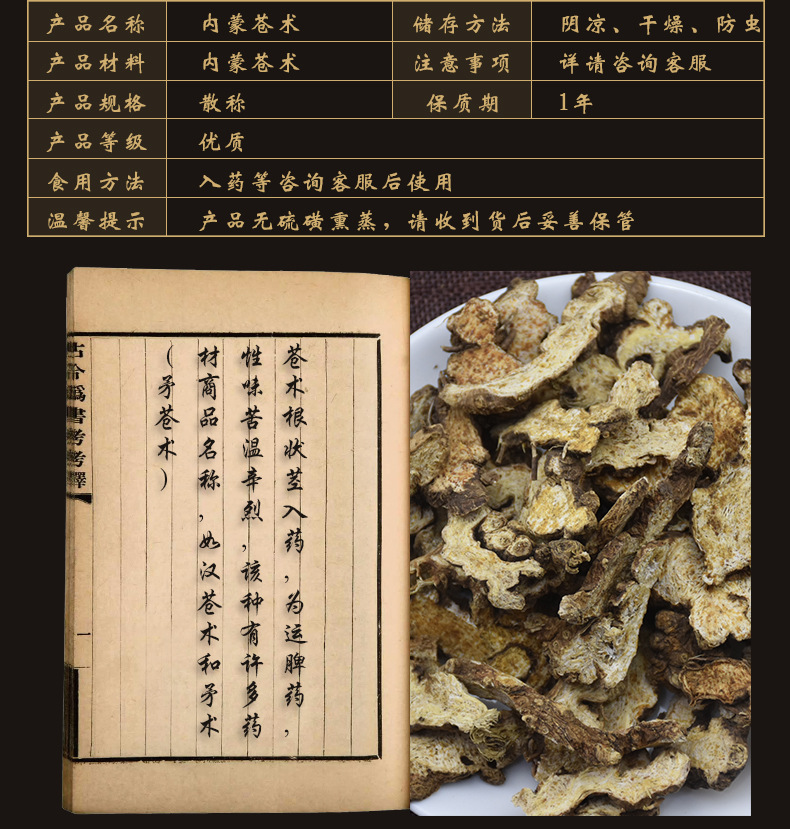 产品名称 内蒙苍术 储存方法 阴凉、干燥、防虫
产品材料 内蒙苍术 注意事项 详请咨询客服
产品规格 散称 保质期 1年
产品等级 优质
食用方法 入药等咨询客服后使用
温馨提示 产品无硫磺熏蒸，请收到货后妥善保管
苍术根状茎入药，为运脾药，
性味苦温辛烈，该种有许多药
材商品名称，如汉苍术和矛术
（矛苍术）
古今爲書考考釋
一